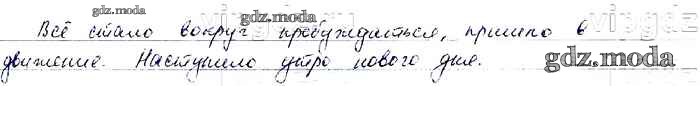 gdz.moda
vipgdz
Всё стало вокруг пробуждаться, пришло в
движение. Наступило утро нового дня.
gdz.moda
gdz.moda